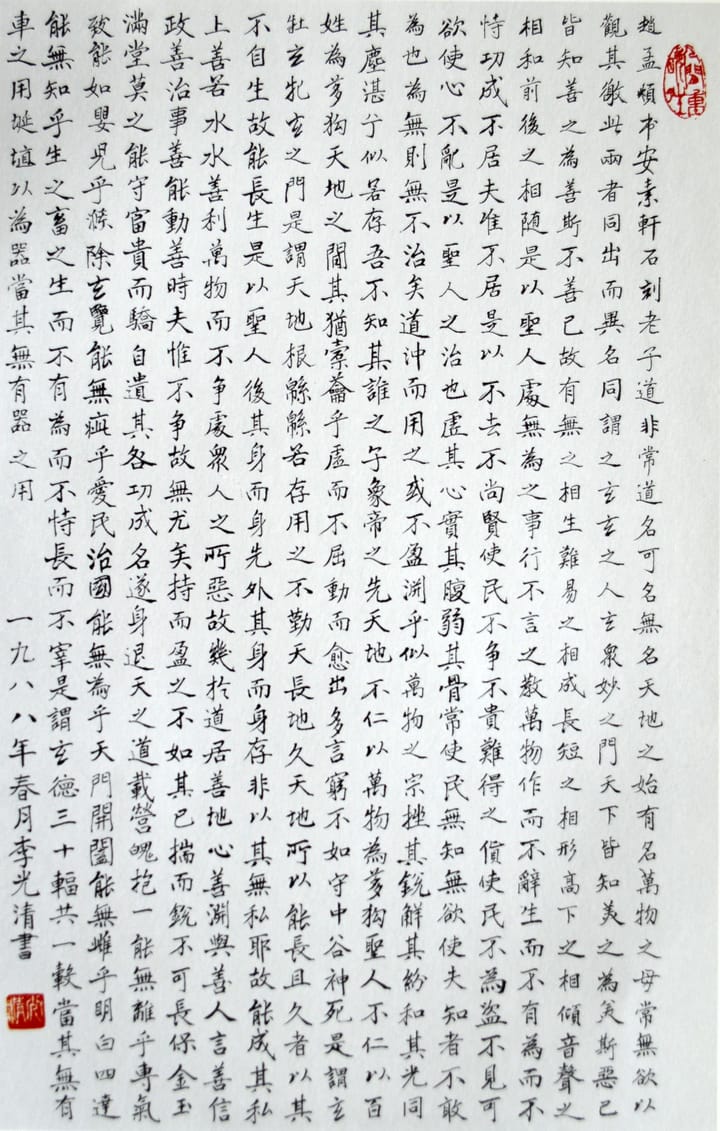 趙孟頫本安素軒石刻老子道非常道名可名無名天地之始有名萬物之母常無欲以
觀其徼此兩者同出而異名同謂之玄玄之人玄眾妙之門天下皆知美之為美斯惡已
皆知善之為善斯不善已故有無之相生難易之相成長短之相形高下之相傾音聲之
相和前後之相随是以聖人處無為之事行不言之教萬物作而不辭生而不有為而不
恃功成不居夫惟不居是以不去不尚賢使民不争不貴難得之貨使民不為盜不見可
欲使心不亂是以聖人之治也虛其心實其腹弱其骨常使民無知無欲使夫知者不敢
為也為無則無不治矣道沖而用之或不盈淵乎似萬物之宗挫其銳解其紛和其光同
其塵湛兮似若存吾不知其誰之子象帝之先天地不仁以萬物為芻狗聖人不仁以百
姓為芻狗天地之間其猶橐籥乎虛而不屈動而愈出多言窮不如守中谷神死是謂玄
牡玄牝玄之門是謂天地根緜緜若存用之不勤天長地久天地所以能長且久者以其
不自生故能長生是以聖人後其身而身先外其身而身存非以其無私耶故能成其私
上善若水水善利萬物而不争處眾人之所惡故幾於道居善地心善淵與善人言善信
政善治事善能動善時夫惟不争故無尤矣持而盈之不如其已揣而銳不可長保金玉
滿堂莫之能守富貴而驕自遺其各功成名遂身退天之道載營魄抱一能無離乎專氣
致能如嬰兒乎滌除玄覽能無疵乎愛民治國能無為乎天門開闔能無雌乎明白四達
能無知乎生之畜之生而不有為而不恃長而不宰是謂玄德三十輻共一轂當其無有
車之用埏埴以為器當其無有器之用 一九八八年春月李光清書